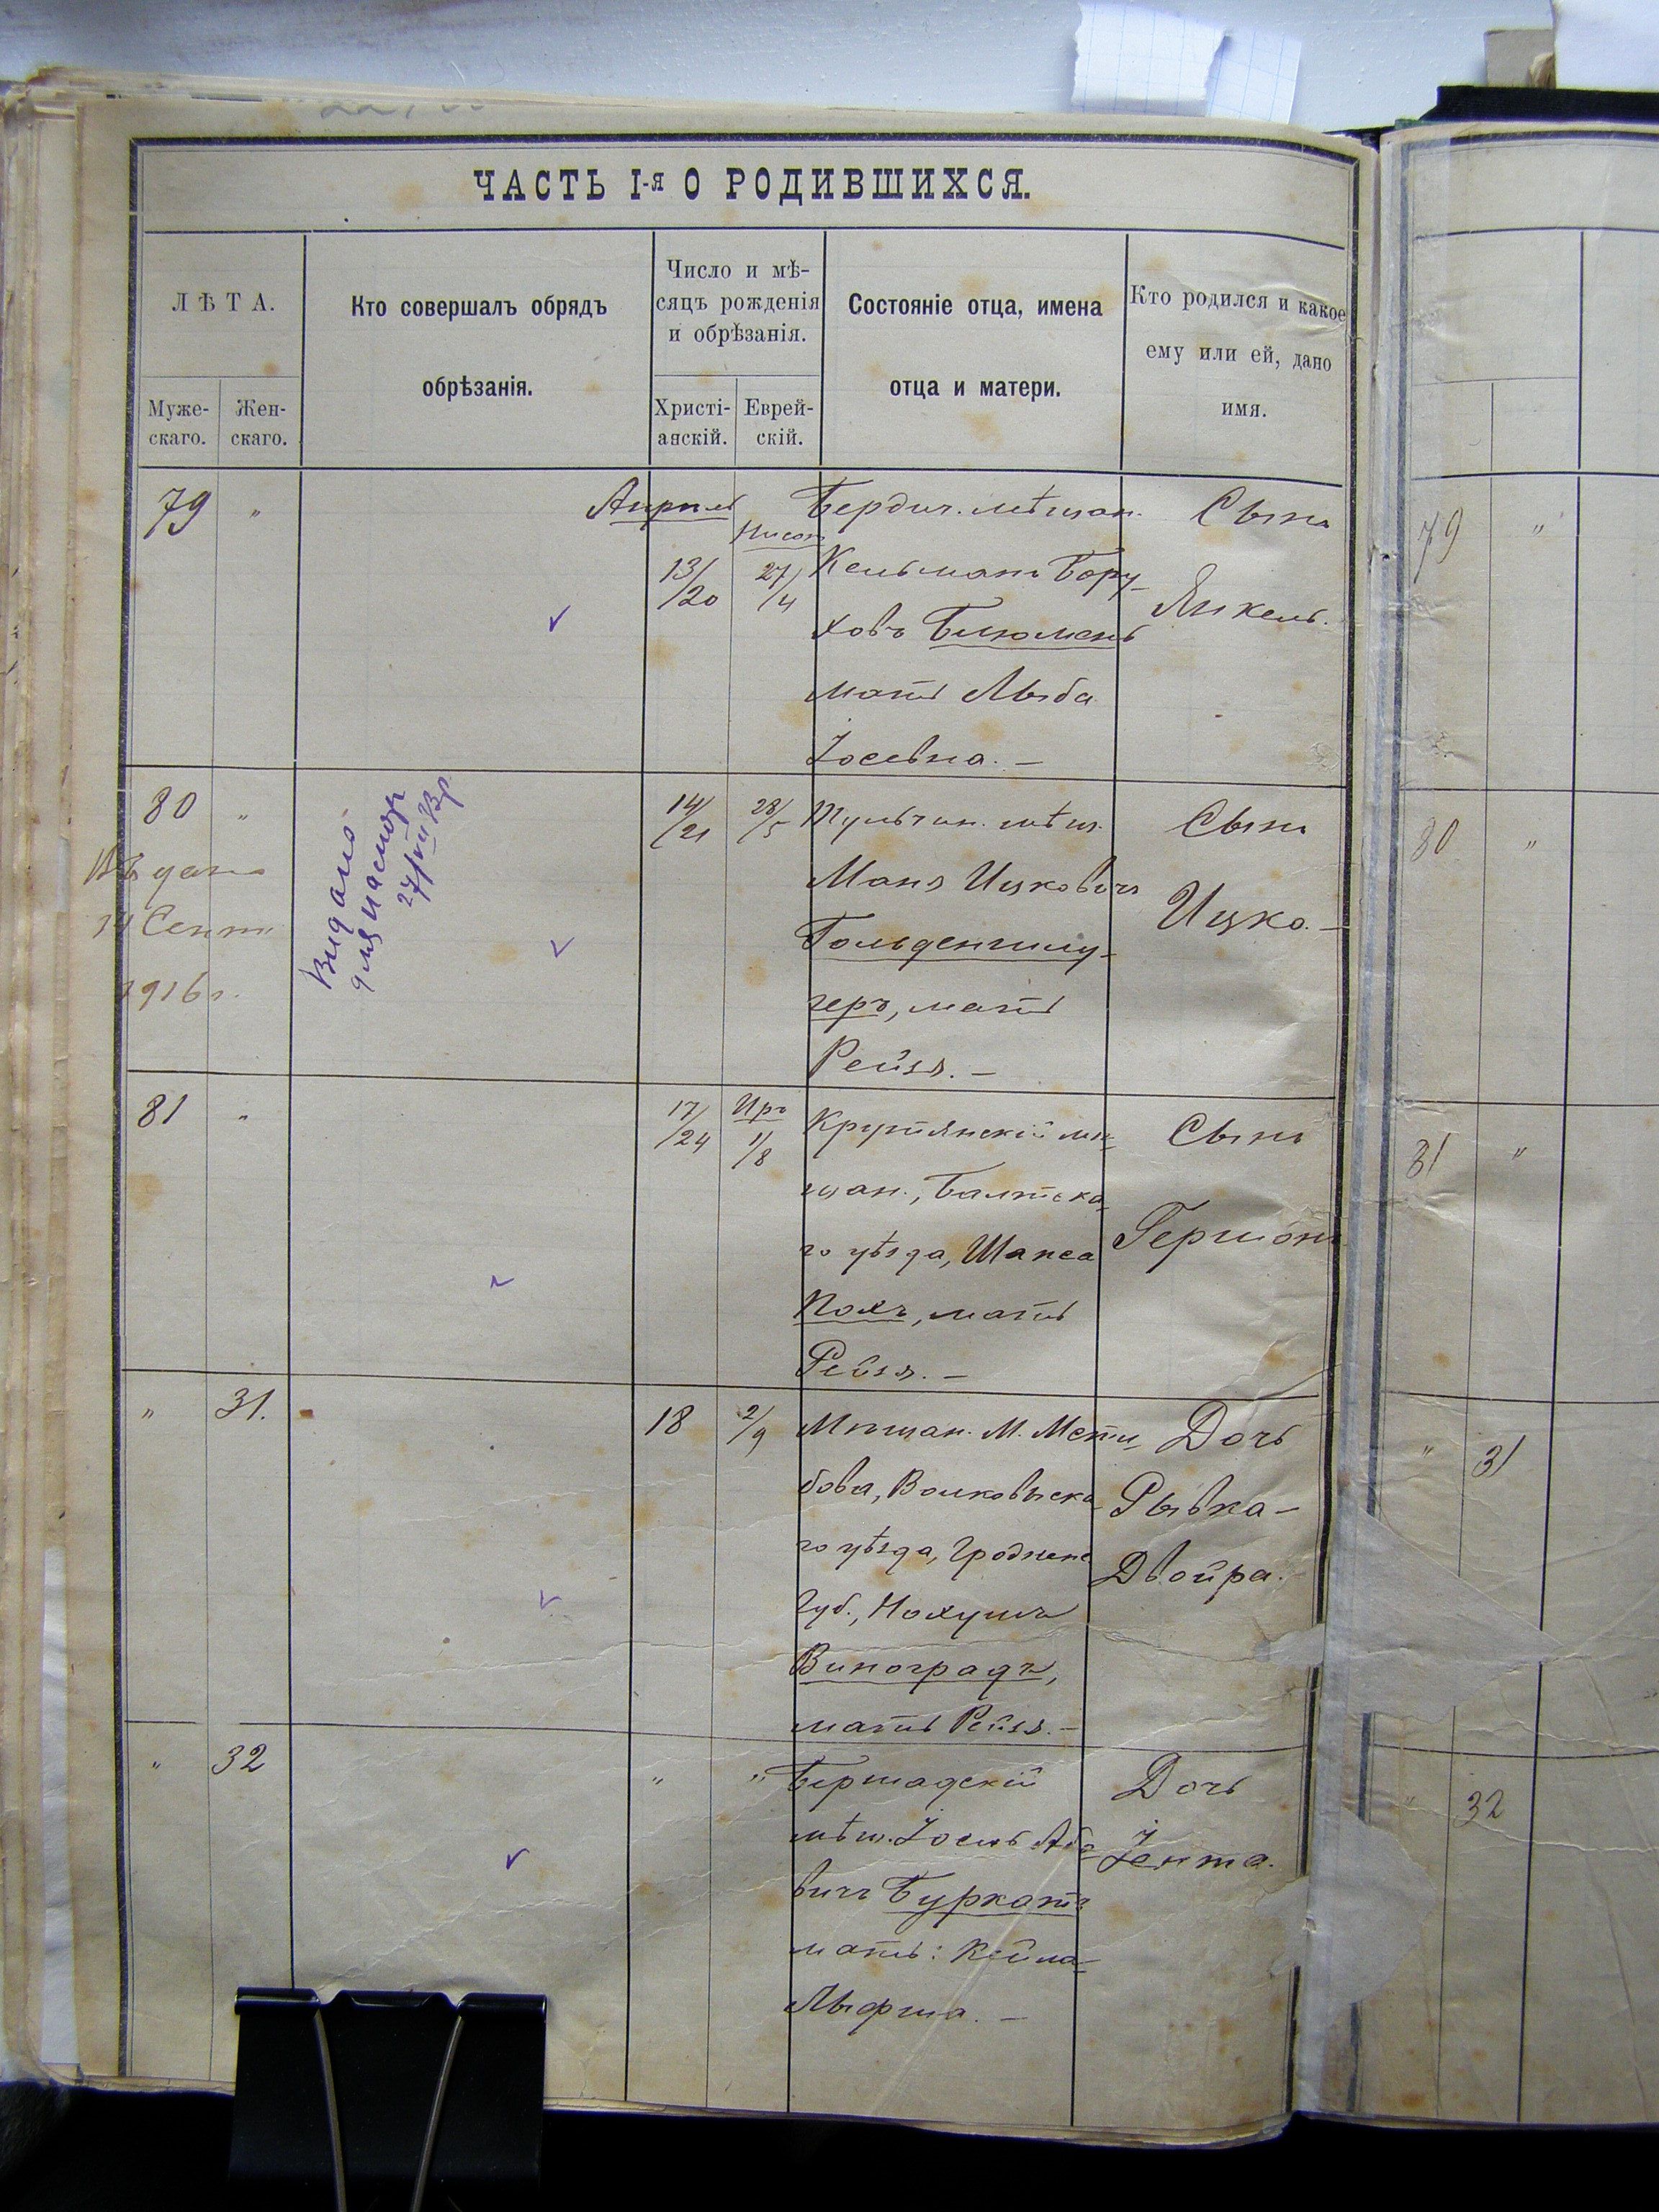 ЧАСТЬ I-я О РОДИВШИХСЯ.
ЛѢТА.
Муже-
скаго.
Жен-
скаго.
Кто совершалъ обрядъ
обрѣзанія.
Число и мѣ-
сяцъ рожденія
и обрѣзанія.
Христі-
анскій.
Еврей-
скій.
Состояніе отца, имена
отца и матери.
Кто родился и какое
ему или ей, дано
имя.
79 "
Апрель
Нисон
13/20 27/4
Бердич. мѣщан.
Кельманъ Бору-
ховъ Блюмень
мать Лыба
Іосевна. —
Сынъ
Янкель.
80 "
Выдано
14 Сент.
1916 г.
Видано
для паспор
27/VII 23р.
14/21 28/5
Тульчин. мѣщ.
Маня Ицковичъ
Гольденшлу-
геръ, мать
Рейзя. —
Сынъ
Ицко. —
81 "
17/24
Иръ
1/8
Крутянскій мѣ-
щан., Балтска-
го уѣзда, Шакса
Похъ, мать
Рейзя. —
Сынъ
Гершонъ
" 31.
18 2/9
Мѣщан. М. Мсти-
бова, Волковыска-
го уѣзда, Гродненс
Губ., Нохумъ
Виноградъ,
мать Рейзя. —
Дочь
Рывка-
Двойра.
" 32
" "
Бершадскій
мѣщ. Іосль Або-
вичъ Буркатъ
мать: Кейла-
Лыфша. —
Дочь
Іента.
79 "
80 "
81 "
" 31
" 32